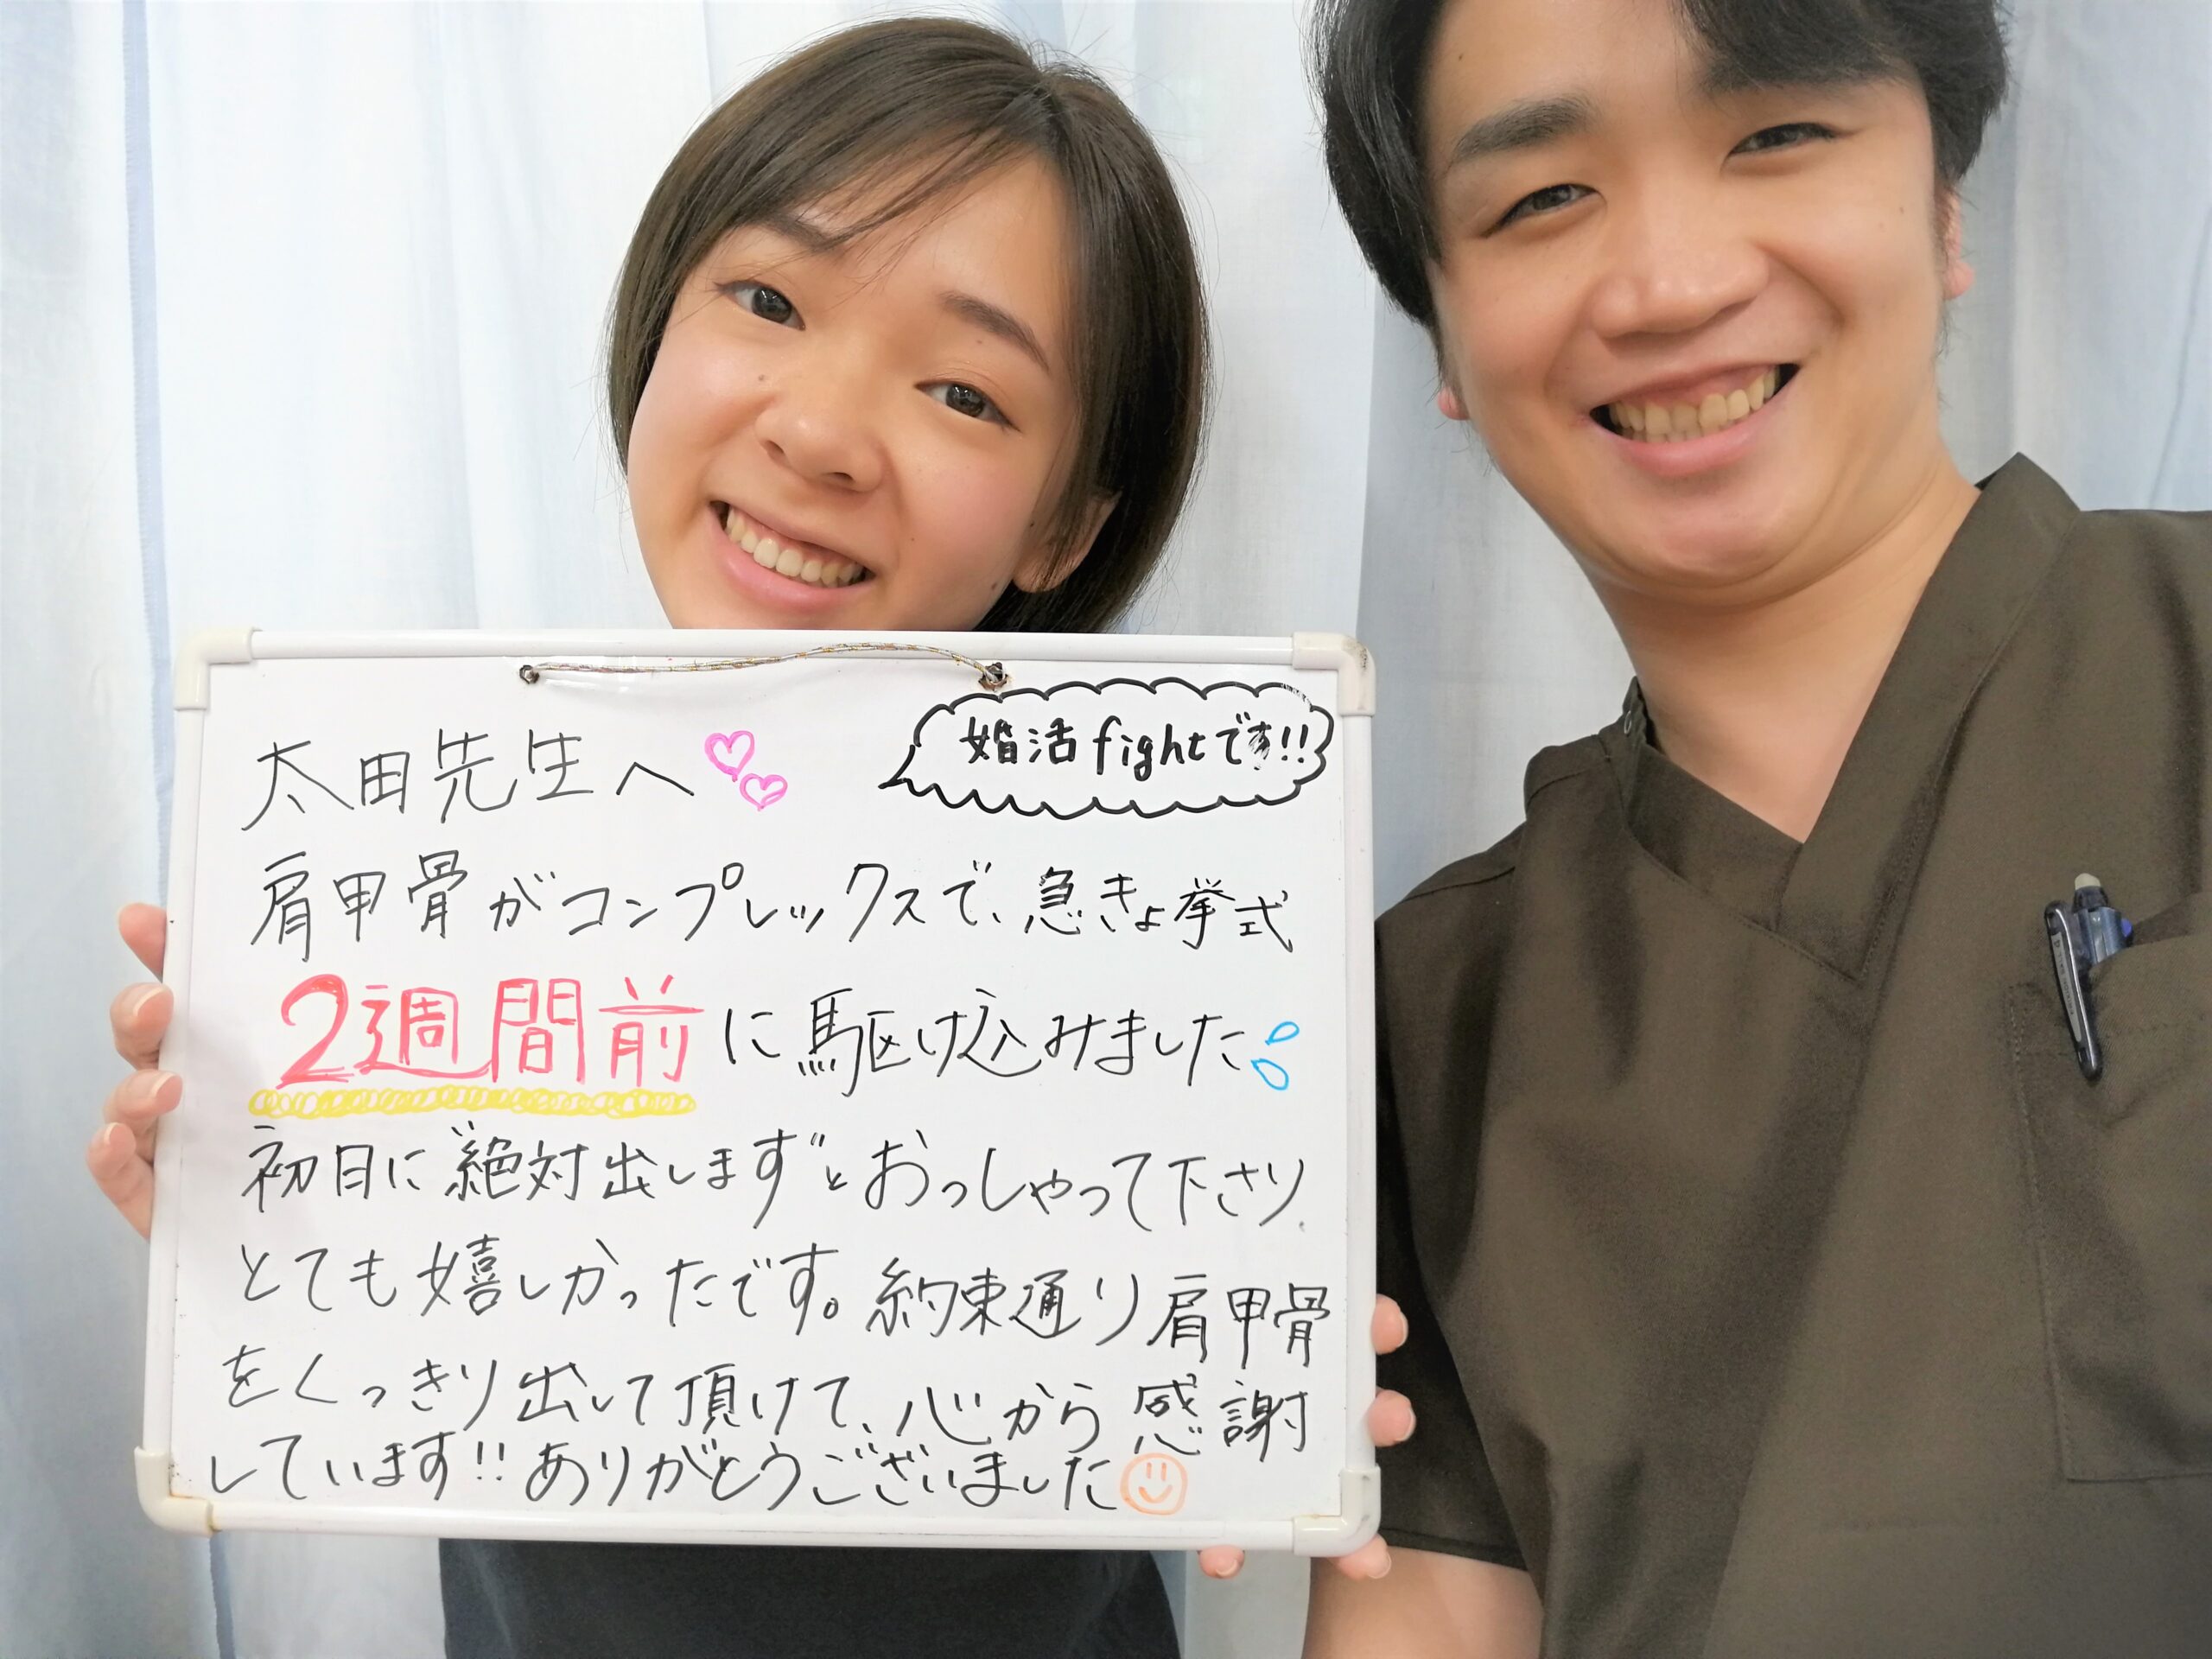 太田先生へ
婚活fightです!!
肩甲骨がコンプレックスで、急きょ挙式
2週間前に駆け込みました
初日に"絶対出します"とおっしゃって下さり、
とても嬉しかったです。約束通り肩甲骨
をくっきり出して頂けて、心から感謝
しています!!ありがとうございました